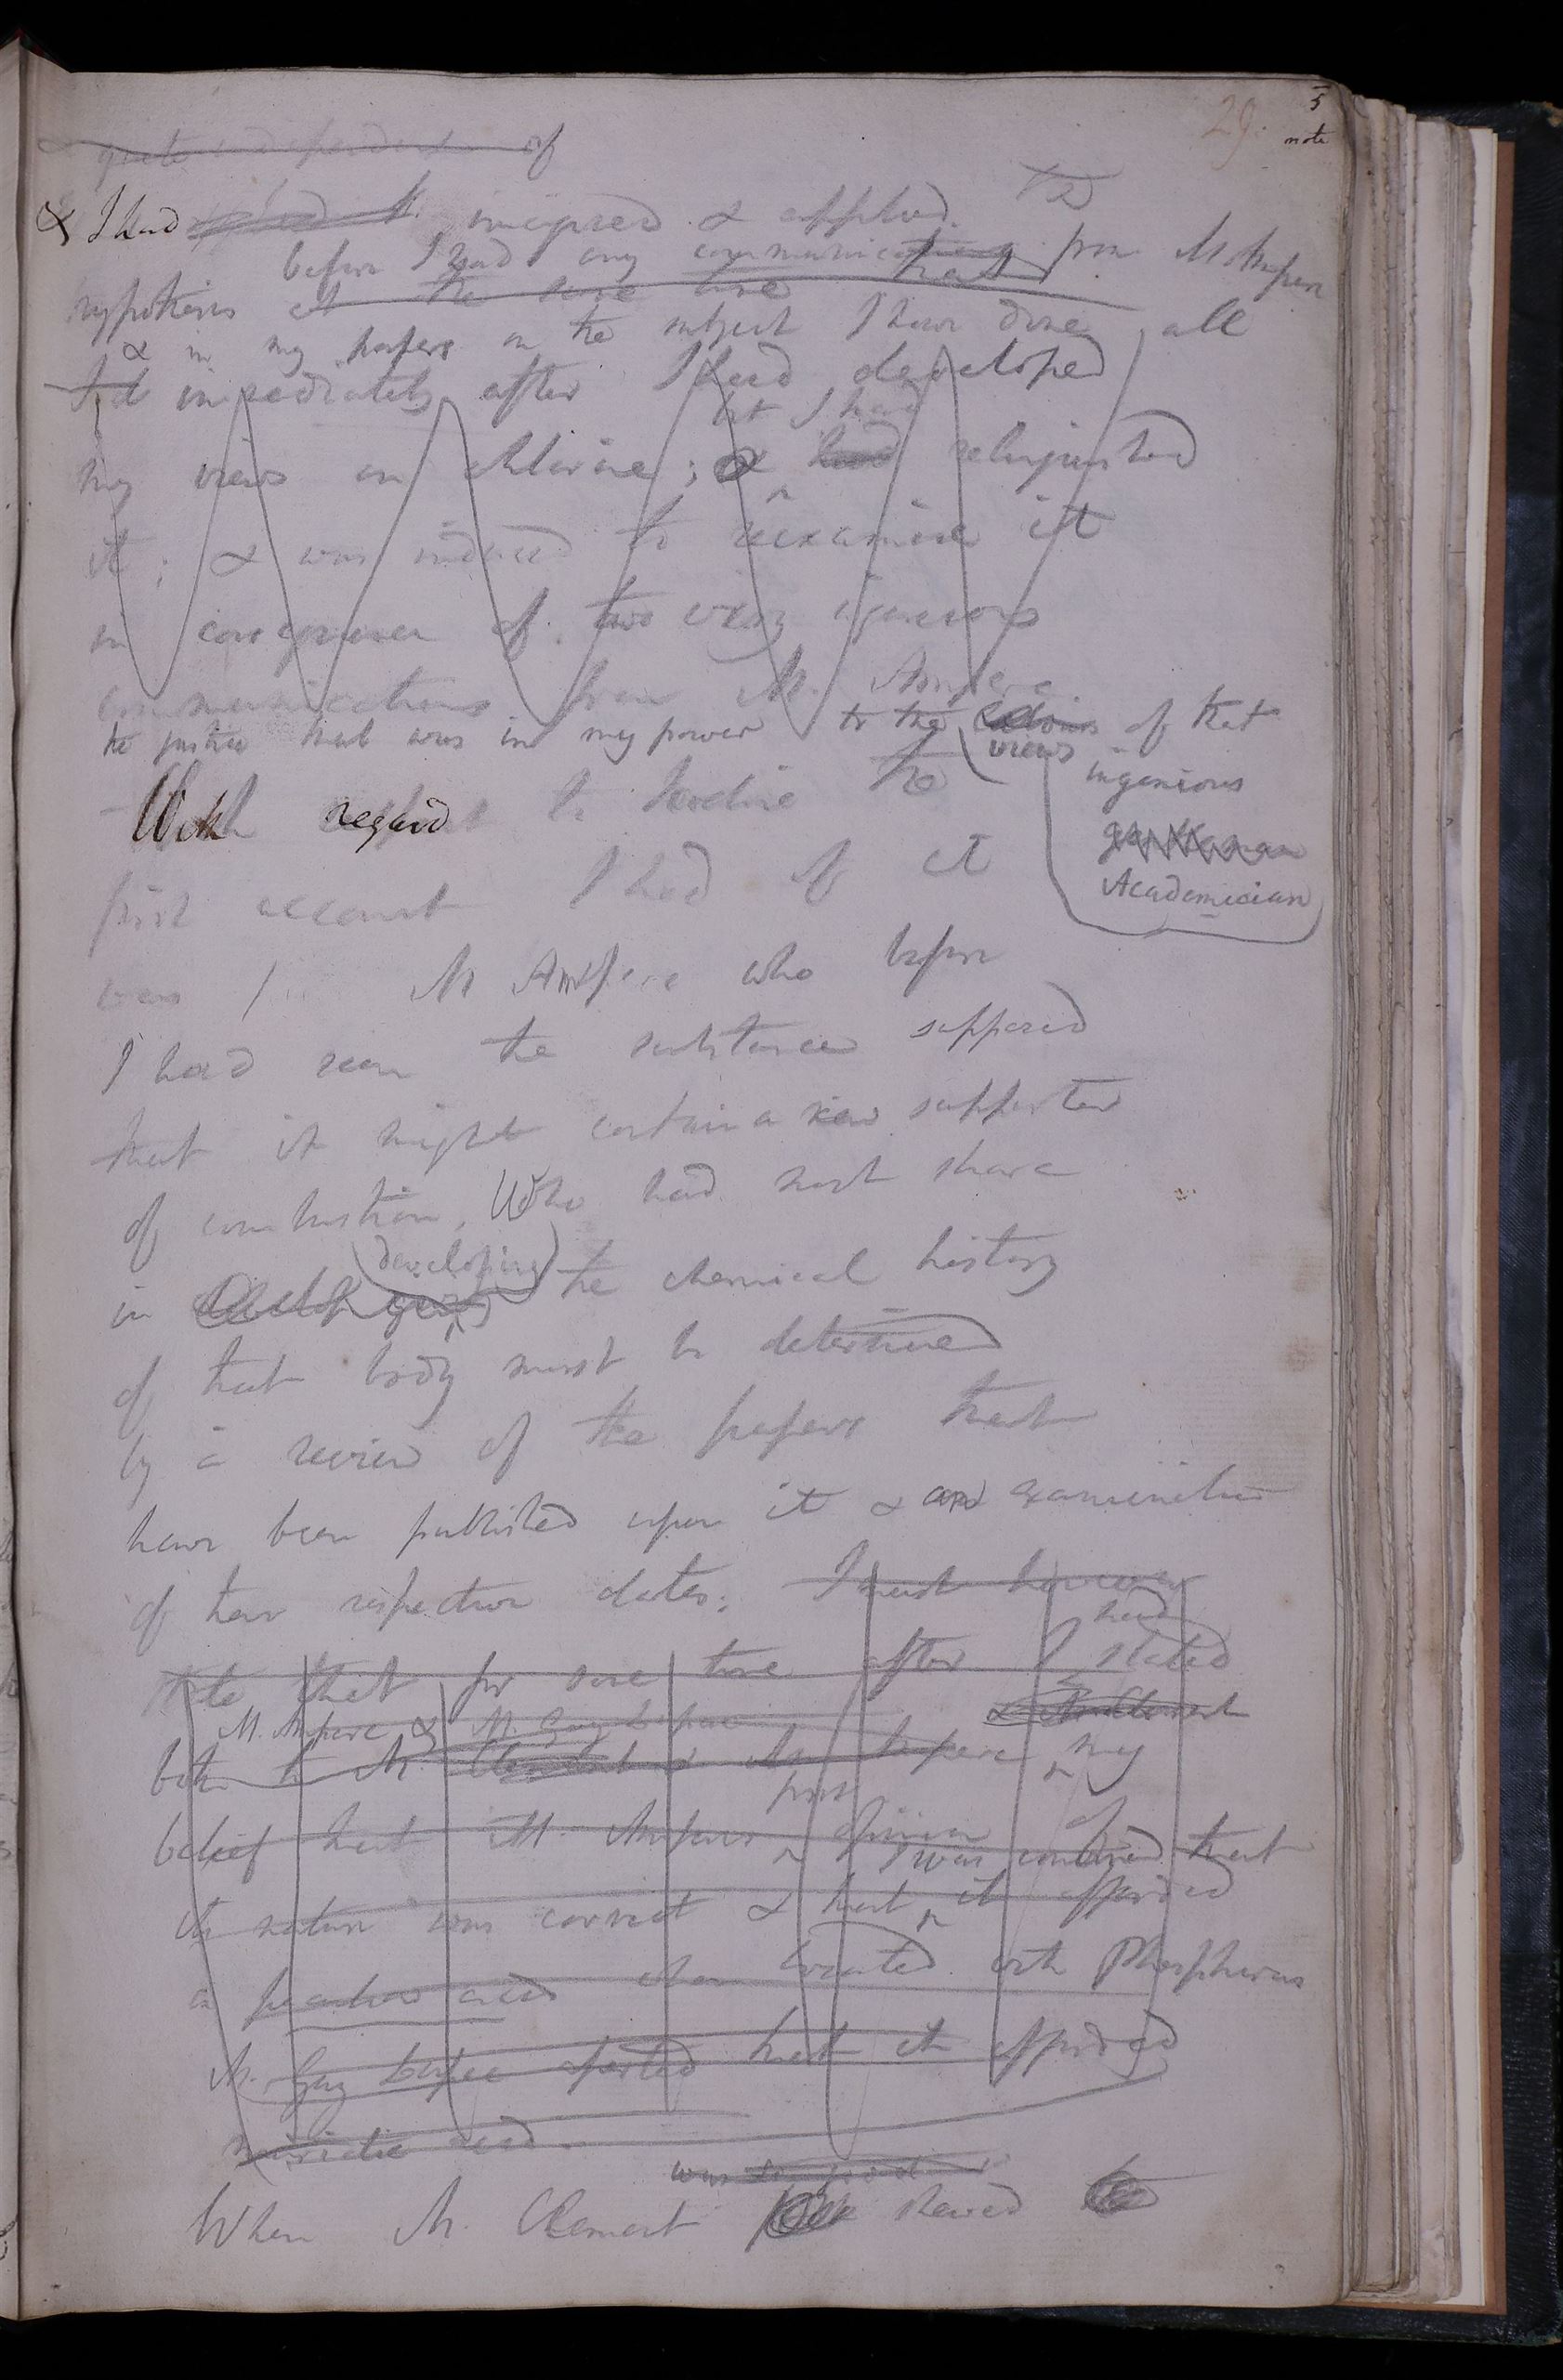 29. 5
note
quite independent of
& I had imagined & applied the
before I had any communication from M Ampere
hypothesis at the same time that
& in my papers on the subject I have done all
I'd immediately after I had developed
but I had
my views on chlorine; & had relinquished
it; & was induced to reexamine it
in consequence of two very ingenious
communications from M. Ampere
the justice that was in my power to the views of that
ingenious
gentleman
Academician
With regard to Iodine the
first account I had of it
was M Ampere who before
I had seen the substance supposed
that it might contain a new supporter
of combustion. Who had most share
developing
in the chemical history
of that body must be determined
by a review of the papers that
have been published upon it & an examination
of their respective dates. I must however
had
state that for some time after I stated
M. Ampere & M. Gay Lussac & M. Clement
both to M. Clement & M. Ampere my
prior
belief that M. Amperes opinion of
I was convinced that
its nature was correct & that it afforded
a peculiar acid when treated with Phosphorus
M. Gay Lussac asserted that it afforded
muriatic acid.
was
When M. Clement shewed